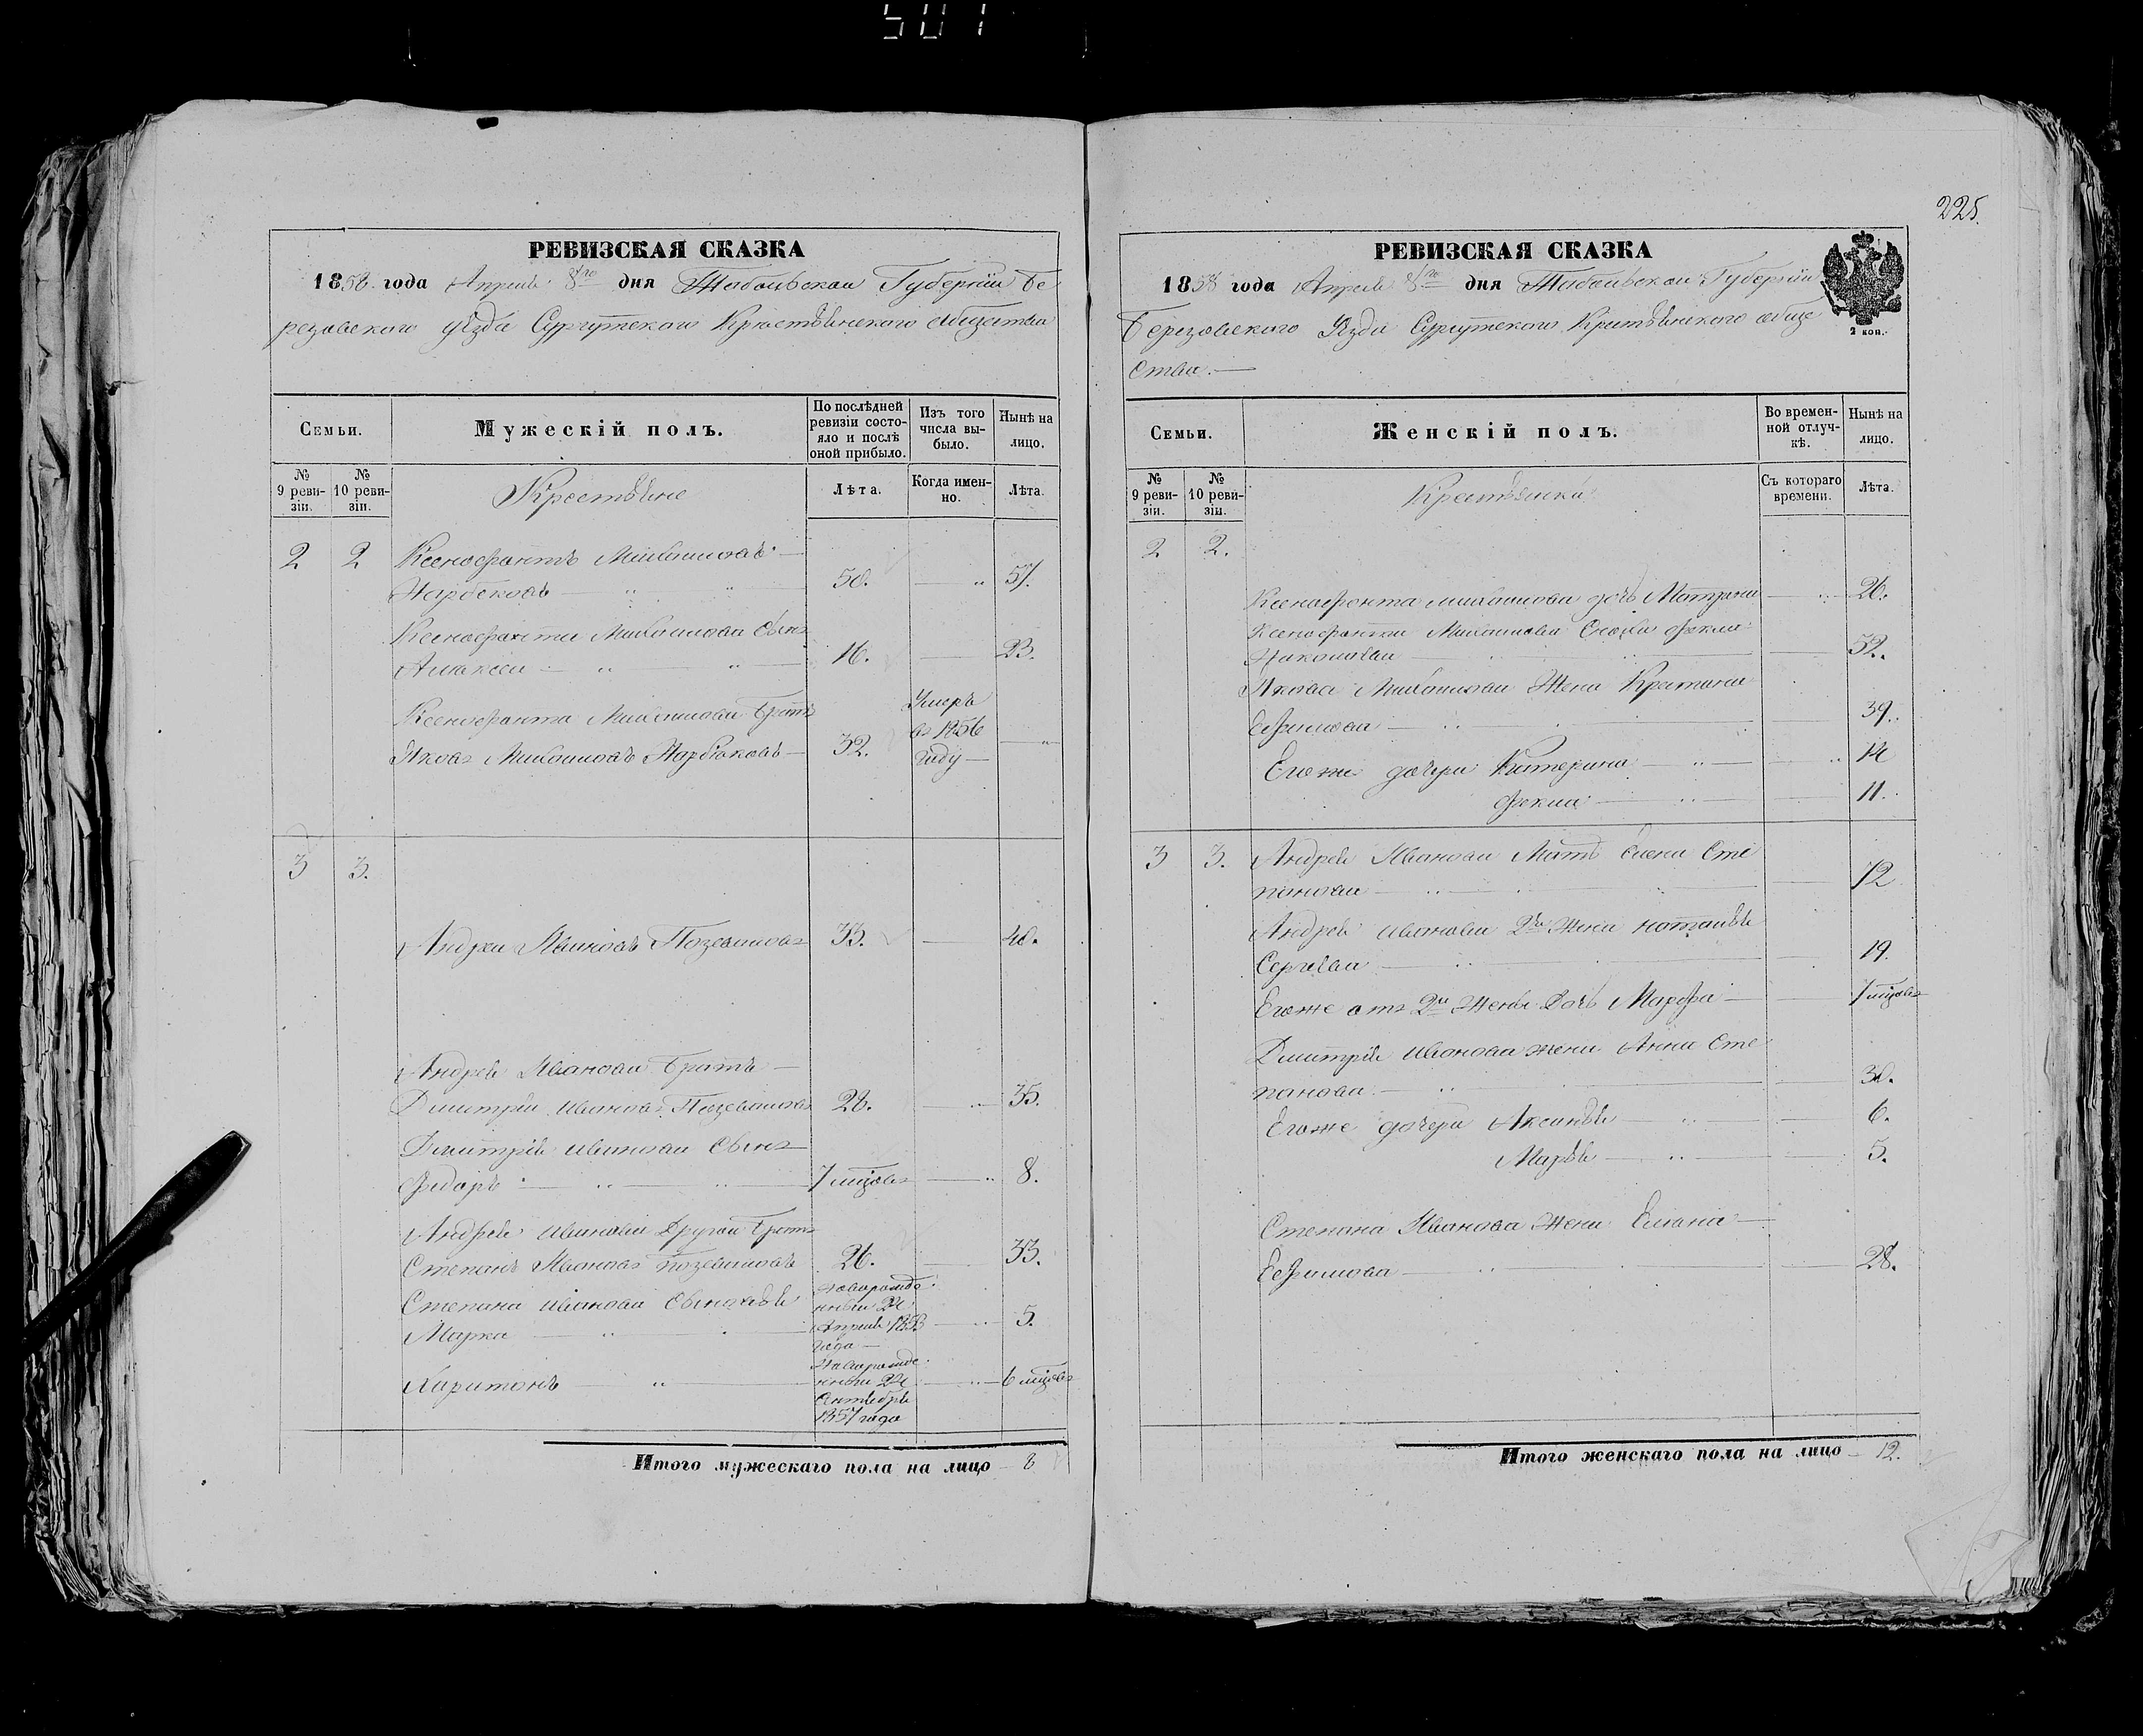 501
225.
РЕВИЗСКАЯ СКАЗКА
1858 года Апреля 8го дня Тобольской Губерніи Бе
резовского уѣзда Сургутского Крестьянского общества
Семьи.
Мужескій полъ.
По послѣдней ревизіи состояло и послѣ оной прибыло.
Изъ того числа выбыло.
Нынѣ на лицо.
№ 9 ревизіи.
№ 10 ревизіи.
Крестьяне
Лѣта.
Когда именно.
Лѣта.
2 2 Ксенофонтъ Михайловъ
50. 57.
Ксенофонта Михайлова Сынъ
Алексей 16. 23.
Ксенофонта Михайлова братъ
Яковъ Михайловъ 32. Умеръ
въ 1856
году
3 3.
Андрей Ивановъ 33. 40.
Андрея Иванова братъ
Дмитрій Ивановъ 28. 35.
Дмитрія Иванова Сынъ
Федоръ 7 мѣцовъ 8.
Андрея Иванова Другой братъ
Степанъ Ивановъ 26. 33.
Степана Иванова Сыновья
Марка Новорожде
нный 24
Апреля 1853 5.
года
Харитонъ Новорожде
нный 24 6 мѣцовъ
Сентября
1857 года
Итого мужескаго пола на лицо 8
РЕВИЗСКАЯ СКАЗКА
1858 года Апреля 8го дня Тобольской Губерніи
Березовского Уѣзда Сургутского Крестьянского обще
ства.
2 коп.
Семьи.
Женскій полъ.
Во временной отлучкѣ.
Нынѣ на лицо.
№ 9 ревизіи.
№ 10 ревизіи.
Крестьянки
Съ котораго времени.
Лѣта.
2 2.
Ксенофонта Михайлова дочь Матрена 26.
Ксенофонта Михайлова Сноха Фекла
Николаева 32.
Якова Михайлова Жена
Ефимова 39.
Егоже дочери Катерина 14
Фекла 11.
3 3. Андрея Иванова Мать Елена Сте
панова 72
Андрея Иванова 2я Жена Наталья
Сергѣева 19.
Егоже отъ 2й Жены Дочь Марфа 7 мѣцовъ
Дмитрія Иванова жена Анна Сте
панова 30.
Егоже дочери Аксинья 6.
Марья 5.
Степана Иванова Жена
Ефимова 28.
Итого женскаго пола на лицо 12.